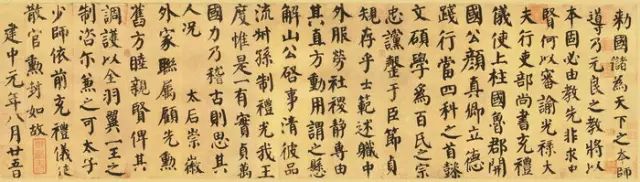 勅國儲為天下之本師
導乃元良之教將以
本固必由教先非求忠
賢何以審諭光祿大
夫行吏部尚書充禮
儀使上柱國魯郡開
國公顏真卿立德
踐行當四科之首懿
文碩學為百氏之宗
忠讜罄于臣節貞
規存乎士範述職中
外服勞社稷靜專由
其直方動用謂之懸
解山公啓事清彼品
流叔孫制禮光我王
度惟是一有實貞萬
國力乃稽古則思其
人況 太后崇徽
外家聯屬顧先勳
舊方睦親賢俾其
調護以全羽翼一王之
制咨尔兼之可太子
少師依前充禮儀使
散官勳封如故
建中元年八月廿五日